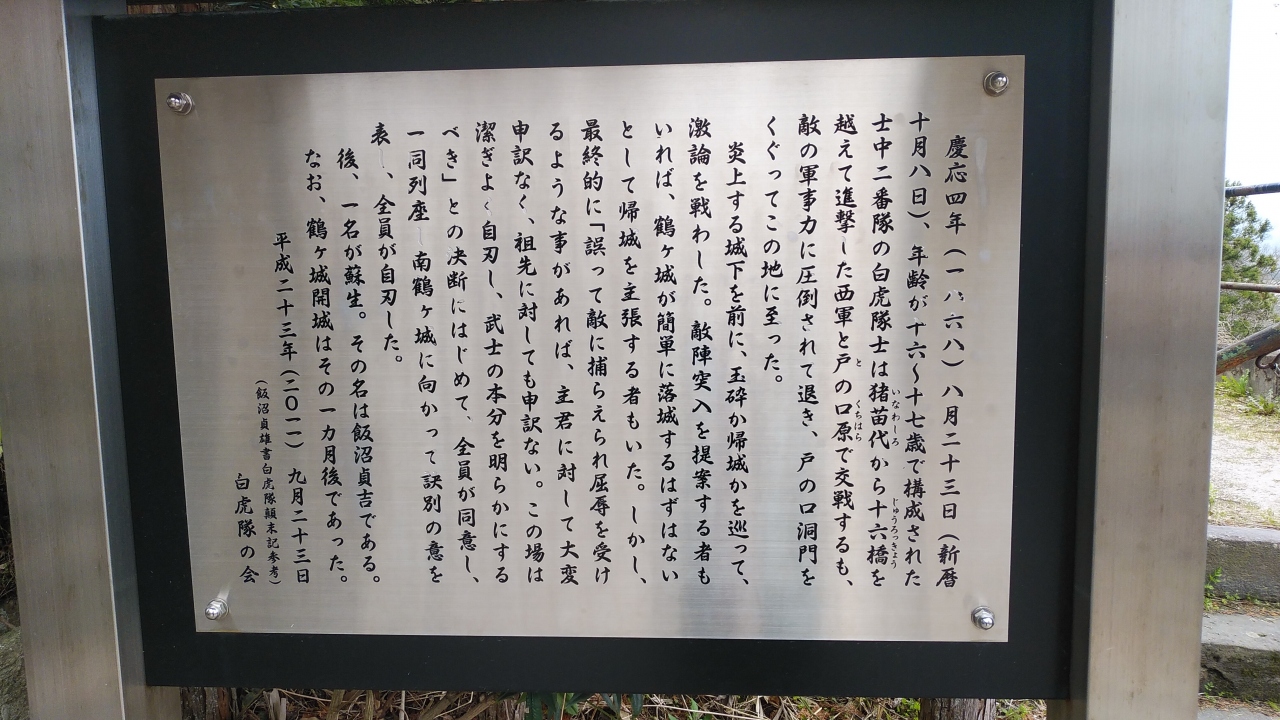 慶応四年(一八六八)八月二十三日(新暦
十月八日)、年齢が十六〜十七歳で構成された
士中二番隊の白虎隊士は猪苗代から十六橋を
いなわしろ
じゅうろっきょう
越えて進撃した西軍と戸の口原で交戦するも、
と
くちはら
敵の軍事力に圧倒されて退き、戸の口洞門を
くぐってこの地に至った。
炎上する城下を前に、玉砕か帰城かを巡って、
激論を戦わした。敵陣突入を提案する者も
いれば、鶴ヶ城が簡単に落城するはずはない
として帰城を主張する者もいた。しかし、
最終的に「誤って敵に捕らえられ屈辱を受け
るような事があれば、主君に対して大変
申訳なく、祖先に対しても申訳ない。この場は
潔ぎよく自刃し、武士の本分を明らかにする
べき」との決断にはじめて、全員が同意し、
一同列座し南鶴ヶ城に向かって訣別の意を
表し、全員が自刃した。
後、一名が蘇生。その名は飯沼貞吉である。
なお、鶴ヶ城開城はその一カ月後であった。
平成二十三年(二〇一一)九月二十三日
(飯沼貞雄書白虎隊顛末記参考)
白虎隊の会